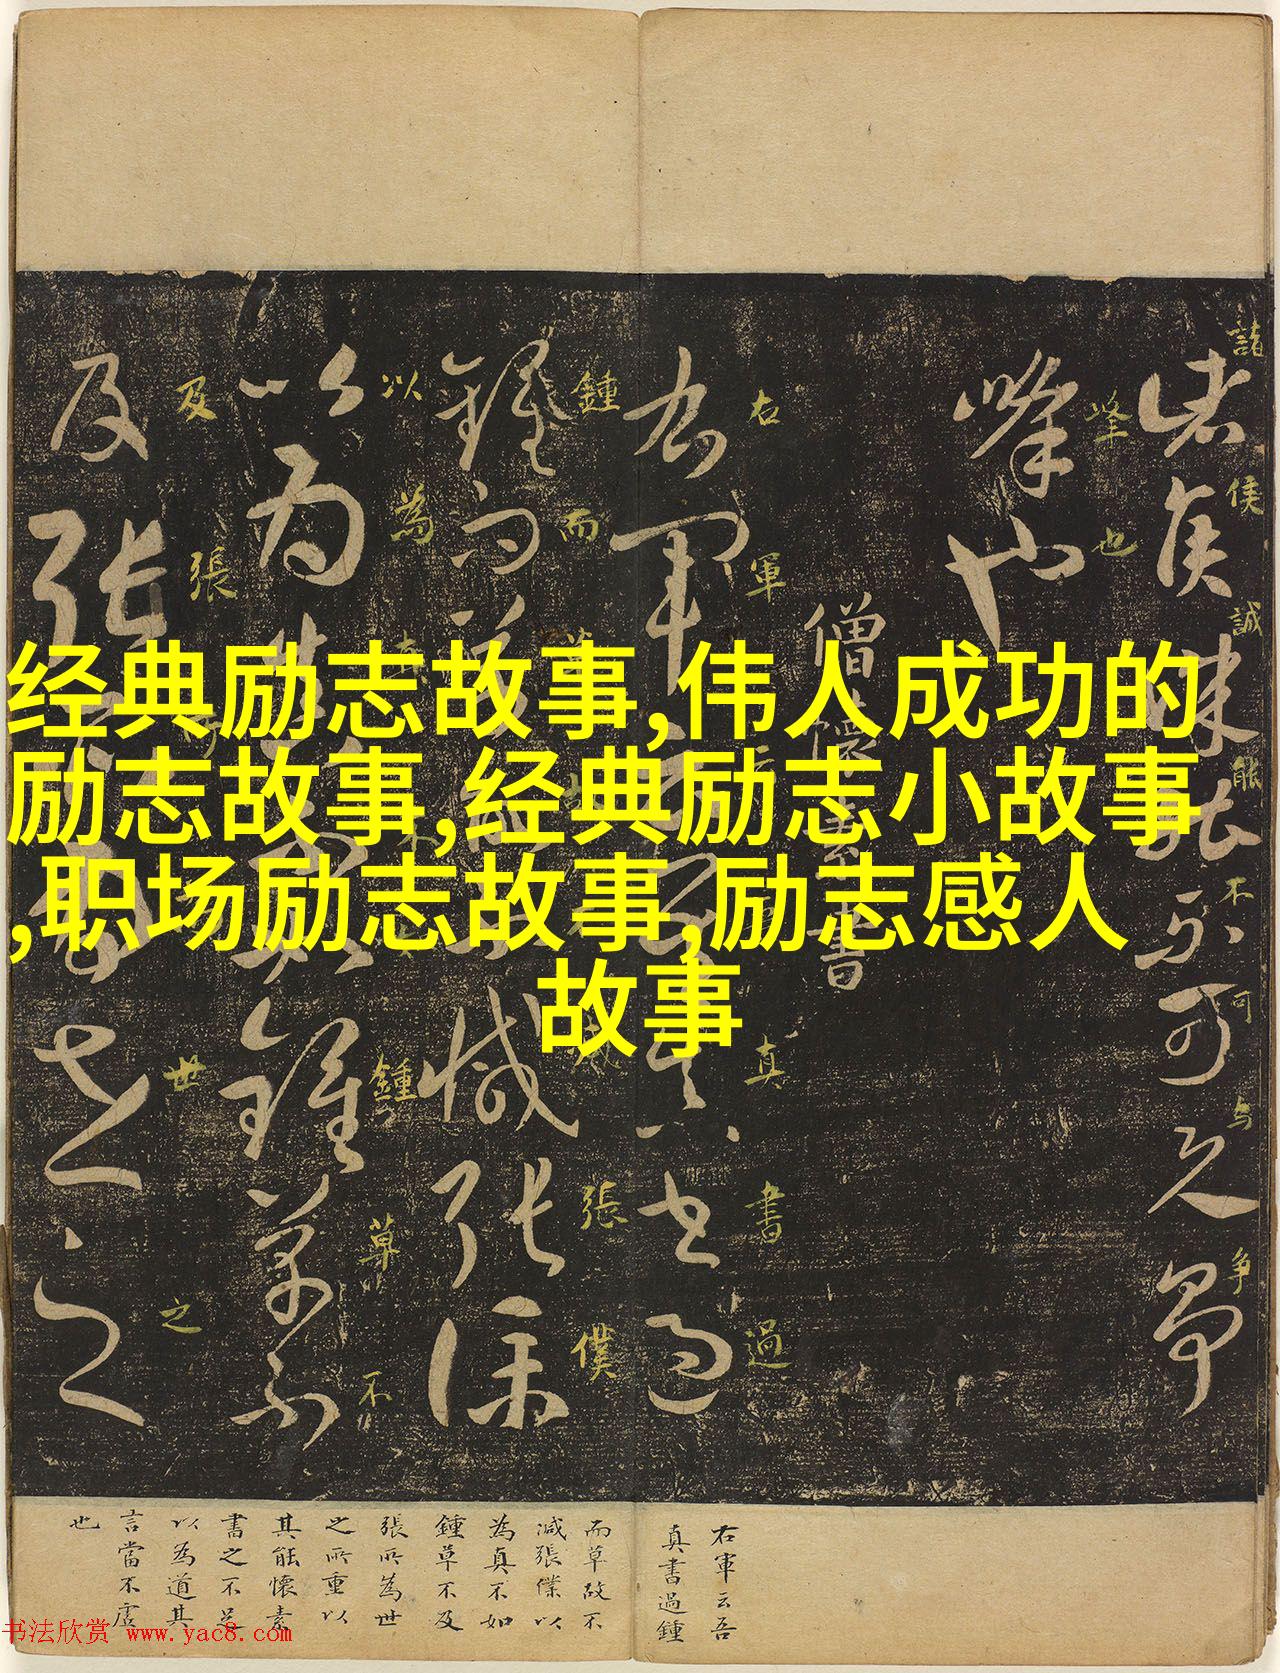 经典励志故事,伟人成功的
励志故事,经典励志小故事
,职场励志故事,励志感人
故事
諸侯誠能不可与争
峰也
僧懷素書
右軍云吾真書過
鍾而草故不減張僕
以為真不如鍾草不
及張所為世之
右軍云吾
真書過鍾
而草故不
減張僕以
為真不如
鍾草不及
張所為世
之所重以
其能懷素
書之不足
以為道其
言當不虛
也
书法欣赏 www.yac8.com